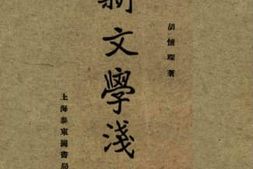 胡懷琛著
新文學淺
上海泰東圖書局